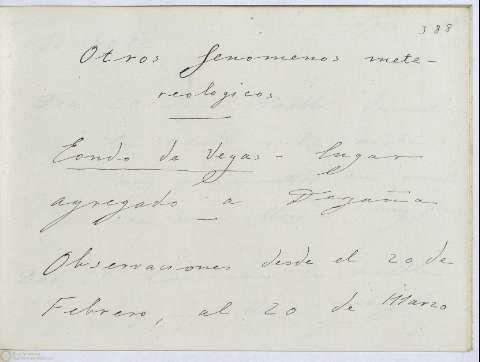 388
Otros fenomenos mete-
reologicos
Fondo de Vegas - lugar
agregado a Degaña
Observaciones desde el 20 de
Febrero, al 20 de Marzo